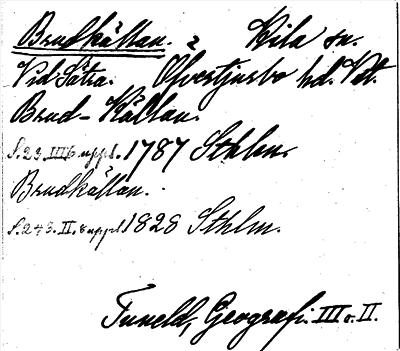 Brudkällan. Kila sn.
Vid Sätra. Öfvertjurbo hd. Vstm.
Brud-Källan.
S. 23. III 6 uppl. 1787 Sthlm.
Brudkällan.
S. 243. II. 8 uppl. 1828 Sthlm.
Tuneld, Geografi. III o. II.